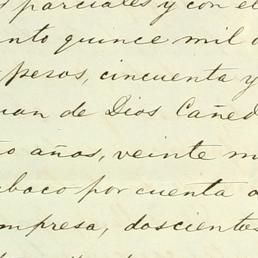 parciales y con el
quince mil
pesos, cincuenta y
de Dios Cañed
años, veinte m
por cuenta
mpresa, doscientos